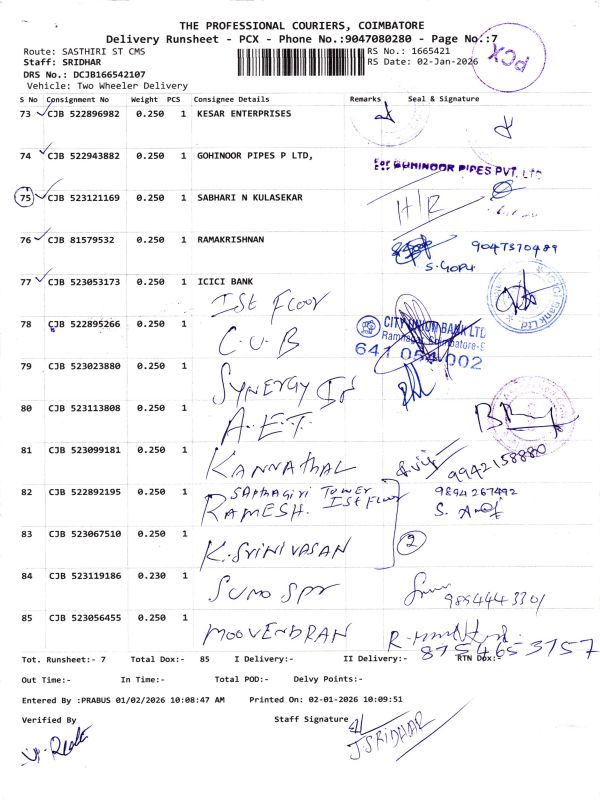 THE PROFESSIONAL COURIERS, COIMBATORE
Delivery Runsheet - PCX - Phone No.:9047080280 - Page No.:7
Route: SASTHIRI ST CMS
RS No.: 1665421
Staff: SRIDHAR
RS Date: 02-Jan-2026
PCX
DRS No.: DCJB166542107
Vehicle: Two Wheeler Delivery
S No Consignment No Weight PCS Consignee Details Remarks Seal & Signature
73 CJB 522896982 0.250 1 KESAR ENTERPRISES
74 CJB 522943882 0.250 1 GOHINOOR PIPES P LTD,
For GOHINOOR PIPES PVT. LTD
75 CJB 523121169 0.250 1 SABHARI N KULASEKAR
H/R
76 CJB 81579532 0.250 1 RAMAKRISHNAN
9047370489
S. GOPI
77 CJB 523053173 0.250 1 ICICI BANK
Ist Floor
78 CJB 522895266 0.250 1 C.U.B
CITY UNION BANK LTD
Ramnagar, Coimbatore-9
641 054 002
79 CJB 523023880 0.250 1 SYNERGY
80 CJB 523113808 0.250 1 A.E.T.
81 CJB 523099181 0.250 1 KANNATHAL
9942158880
82 CJB 522892195 0.250 1 SAPTHAGIRI TOWER Ist Floor
RAMESH.
9894267492
83 CJB 523067510 0.250 1 K. SRINIVASAN
2
84 CJB 523119186 0.230 1 SUMO SPR
9894443301
85 CJB 523056455 0.250 1 MOOVENDRAN
8754653757
Tot. Runsheet:- 7 Total Dox:- 85 I Delivery:- II Delivery:- RTN Dox:-
Out Time:- In Time:- Total POD:- Delvy Points:-
Entered By :PRABUS 01/02/2026 10:08:47 AM Printed On: 02-01-2026 10:09:51
Verified By Staff Signature
J SRIDHAR